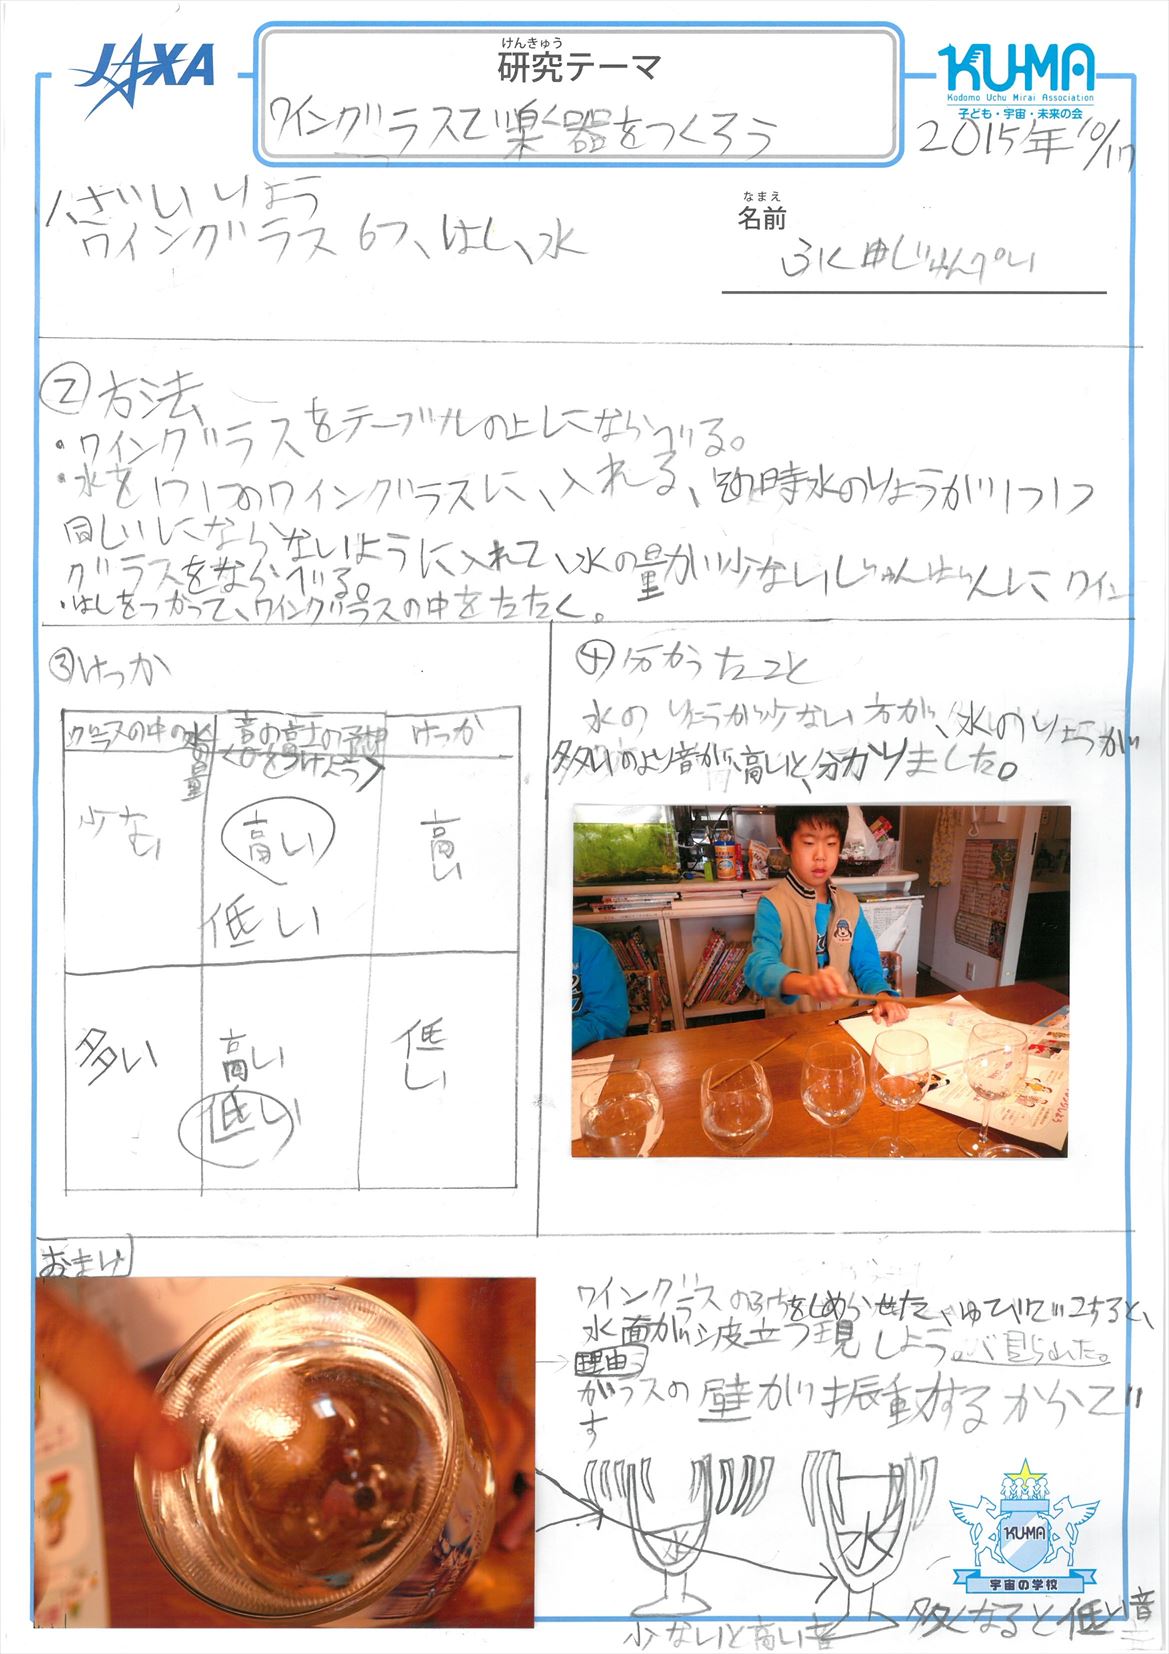 JAXA
けんきゅう
研究テーマ
KU-MA
Kodomo Uchu Mirai Association
子ども・宇宙・未来の会
ワイングラスで楽器をつくろう
2015年10/17
1、ざいりょう
ワイングラス6つ、はし、水
なまえ
名前
じゅんぺい
②方法
・ワイングラスをテーブルの上にならべる。
・水を1つ1つのワイングラスに、入れる、 時水のりょうが1つ1つ
同じにならないように入れて、水の量が少ないじゅんばんに、ワイン
グラスをならべる。
・はしをつかって、ワイングラスの中をたたく。
③けっか
グラスの中の水量
音の高さの予想
<○をつけよう>
けっか
少ない
高い
低い
高い
多い
高い
低い
低い
④分かったこと
水のりょうが少ない方が、水のりょうが
多いのより音が、高いと、分かりました。
おまけ
ワイングラスのふちをしめらせた、ゆびでこすると、
水面が波立つ現しょうが見られた。
理由
ガラスの壁が振動するからで
す
水
水
少ないと高い音
多くなると低い音
KUMA
宇宙の学校